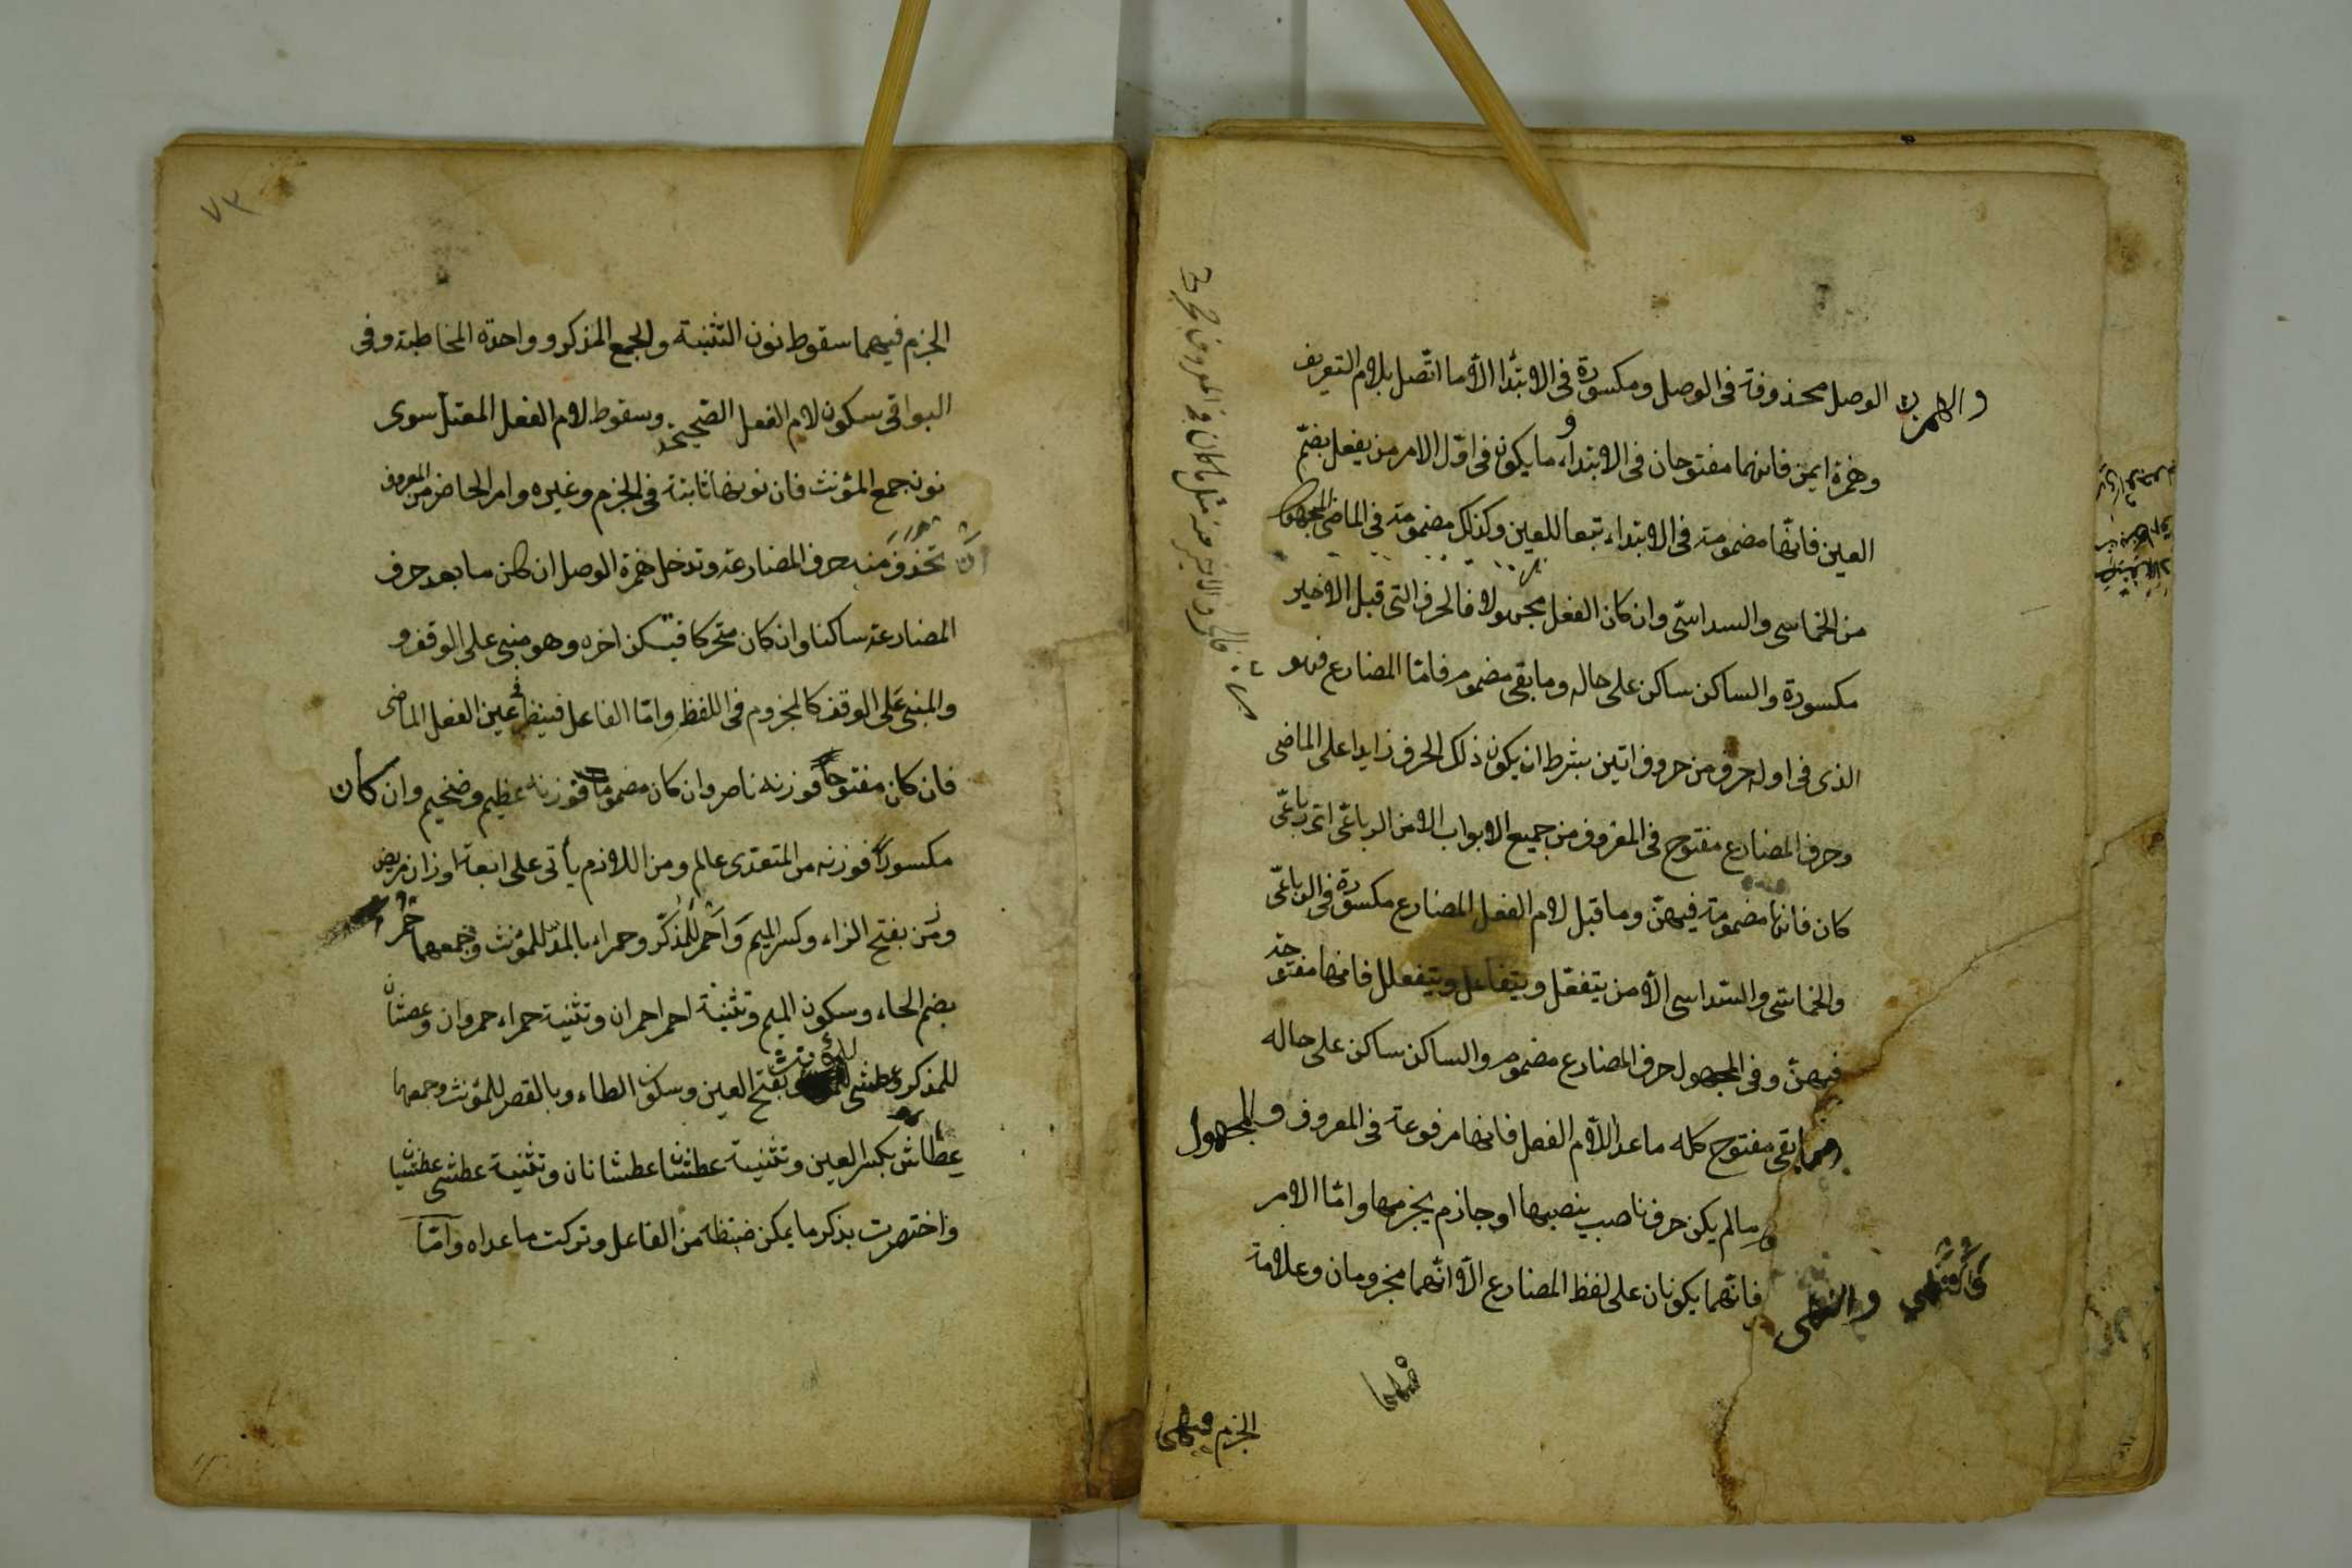 والهمزة الوصل محذوفة فى الوصل ومكسورة فى الابتدا الّا ما اتّصل بلام التعريف
وهمزة ايمن فانهما مفتوحان فى الابتداء وما يكون فى اوّل الامر من يفعل بضمّ
العين فانّها مضمومة فى الابتداء تبعا للعين وكذلك مضمومة فى الماضى المجهول
من الخماسى والسداسىّ وان كان الفعل مجهولا فالحرف التى قبل الاخير
مكسورة والساكن ساكن على حاله وما بقى مضموم فامّا المضارع فهو
الذى فى اوله حرف من حروف اتين بشرط ان يكون ذلك الحرف زايدا على الماضى
وحرف المضارع مفتوح فى المعروف من جميع الابواب الا من الرباعىّ اىّ رباعىّ
كان فانها مضمومة فيهنّ وما قبل لام الفعل المضارع مكسورة فى الرباعىّ
والخماسىّ والسّداسى الّا من يتفعّل ويتفاعل ويتفعلل فانها مفتوحة
فيهنّ وفى المجهول حرف المضارع مضموم والساكن ساكن على حاله
وما بقى مفتوح كله ما عدا اللّام الفعل فانها مرفوعة فى المعروف والمجهول
ما لم يكن حرف ناصب ينصبها او جازم يجزمها وامّا الامر
والنهى فانّهما يكونان على لفظ المضارع الّا انّهما مجزومان وعلامة
الجزم فيهما
٧٣
الجزم فيهما سقوط نون التّثنية والجمع المذكر وواحدة المخاطبة وفى
البواقى سكون لام الفعل الصّحيح وسقوط لام الفعل المعتل سوى
نون جمع المؤنث فان نونها ثابتة فى الجزم وغيره وامر الحاضر من المعروف
تحذف منه حرف المضارعة وتدخل همزة الوصل ان كان ما بعد حرف
المضارعة ساكنا وان كان متحركا فتسكن اخره وهو مبنى على الوقف و
والمبنى على الوقف كالمجزوم فى اللفظ وامّا الفاعل فينظر فى عين الفعل الماضى
فان كان مفتوحاً فوزنه ناصر وان كان مضموما فوزنه عظيم وضخيم وان كان
مكسوراً فوزنه من المتعدّى عالم ومن اللازم يأتى على اربعة اوزان مريض
وزمن بفتح الزاء وكسر الميم وَاَحمر للمذكّر وحمراء بالمدّ للمؤنث وجمعهما حمر
بضم الحاء وسكون الميم وتثنية احمر احمران وتثنية حمراء حمروان وعطشان
للمذكر وعطشى للمؤنث بفتح العين وسكون الطاء وبالقصر للمّؤنث وجمعهما
عطاش بكسر العين وتثنية عطشان عطشانان وتثنية عطشى عطشيا
واختصرت بذكر ما يمكن ضبطه من الفاعل وتركت ما عداه وامّا